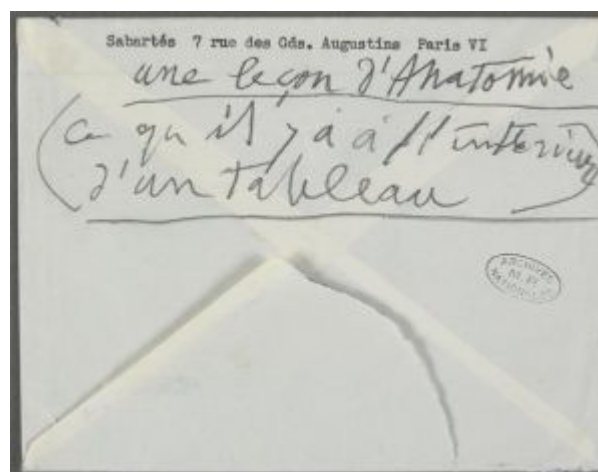 Sabartés 7 rue des Gds. Augustins Paris VI
une leçon d'Anatomie
(ce qu'il y a à l'intérieur
d'un tableau)
ARCHIVES
NATIONALES